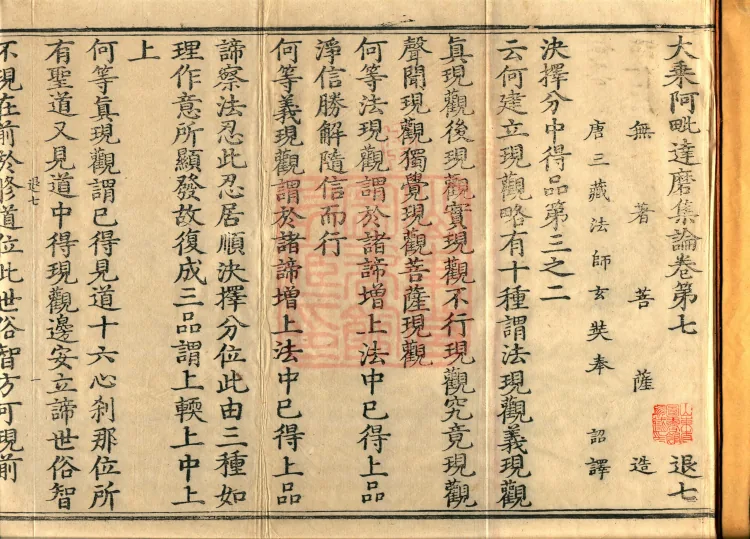 大乘阿毗達磨集論卷第七 退七
無著菩薩造
唐三藏法師玄奘奉 詔譯
決擇分中得品第三之二
云何建立現觀略有十種謂法現觀義現觀
真現觀後現觀實現觀不行現觀究竟現觀
聲聞現觀獨覺現觀菩薩現觀
何等法現觀謂於諸諦增上法中已得上品
淨信勝解隨信而行
何等義現觀謂於諸諦增上法中已得上品
諦察法忍此忍居順決擇分位此由三種如
理作意所顯發故復成三品謂上輭上中上
上
何等真現觀謂已得見道十六心剎那位所
有聖道又見道中得現觀邊安立諦世俗智
退七 一
不現在前於修道位此世俗智方可現前